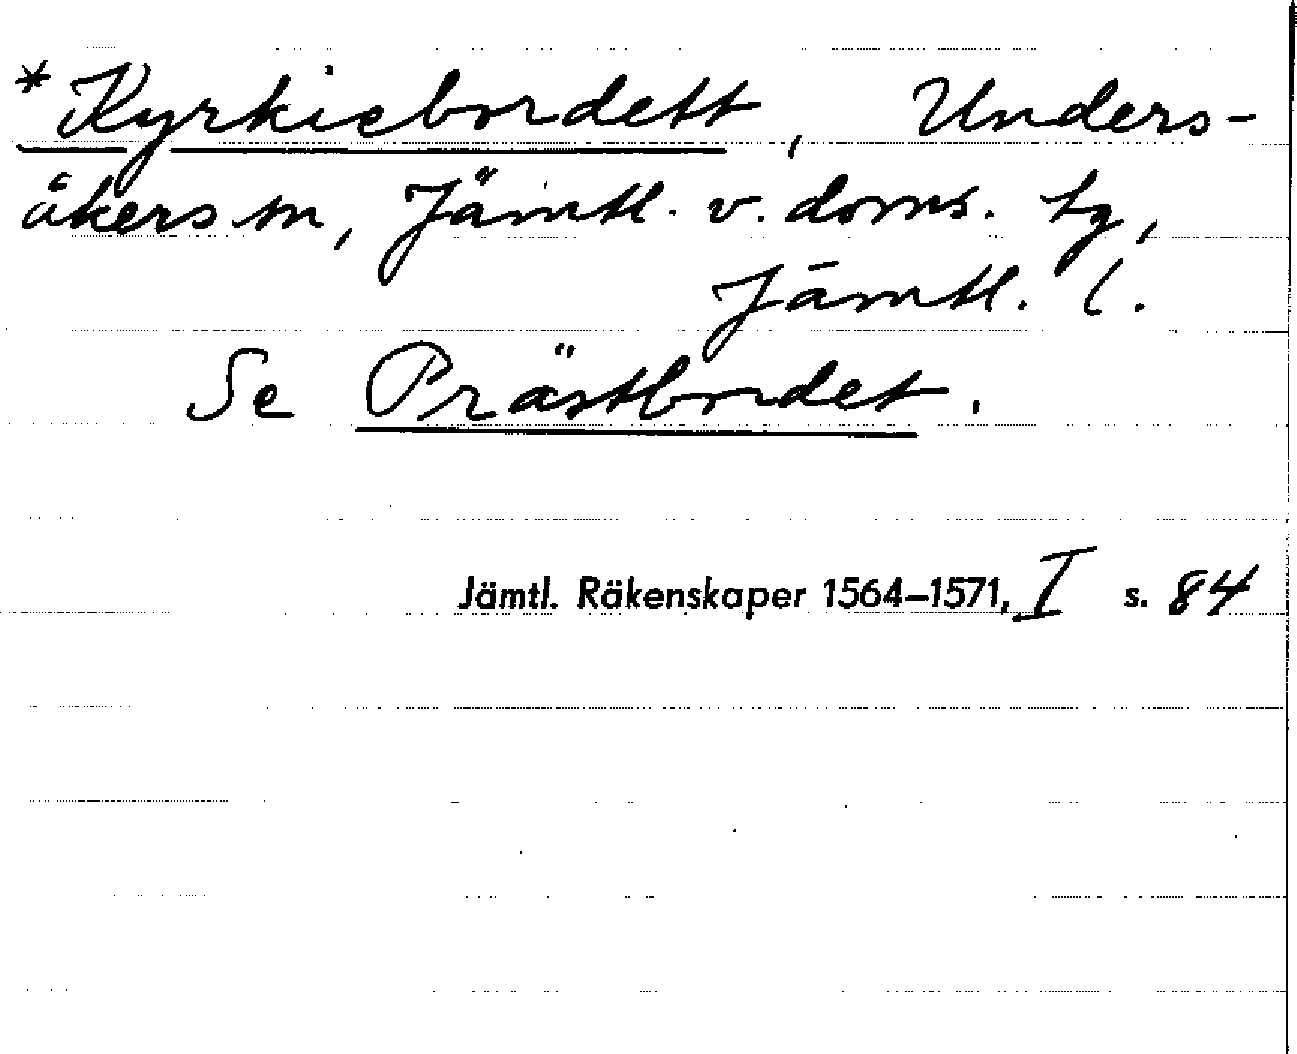 *Kyrkiebordett, Unders-
åkers sn, Jämtl. v. doms. tg,
Jämtl. l.
Se Prästbordet.
Jämtl. Räkenskaper 1564–1571, I s. 84